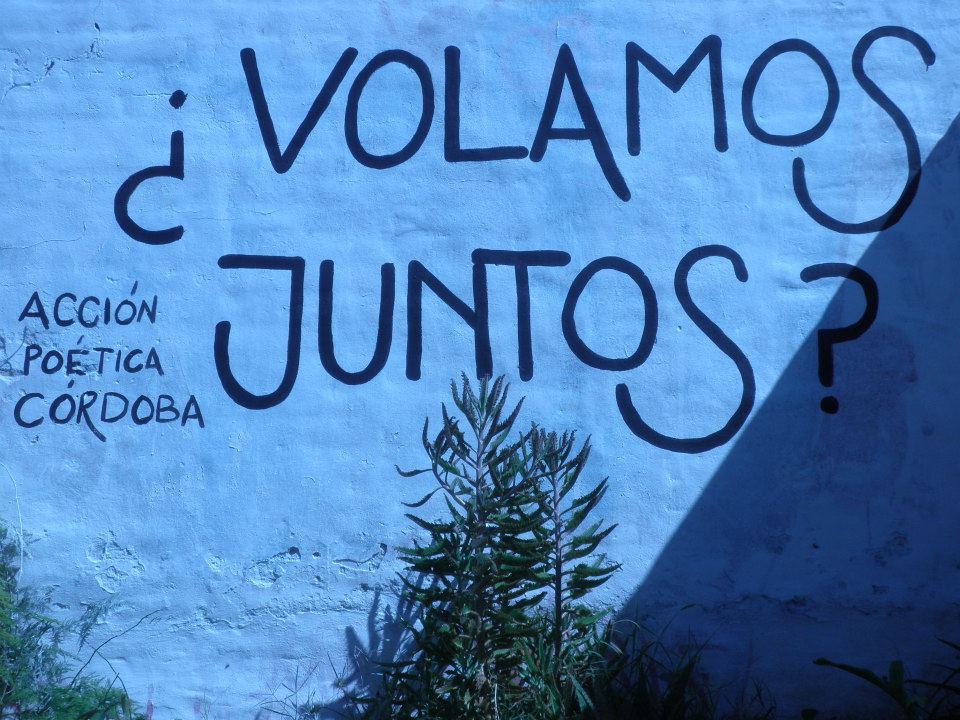 ¿VOLAMOS
JUNTOS?
ACCIÓN
POÉTICA
CÓRDOBA